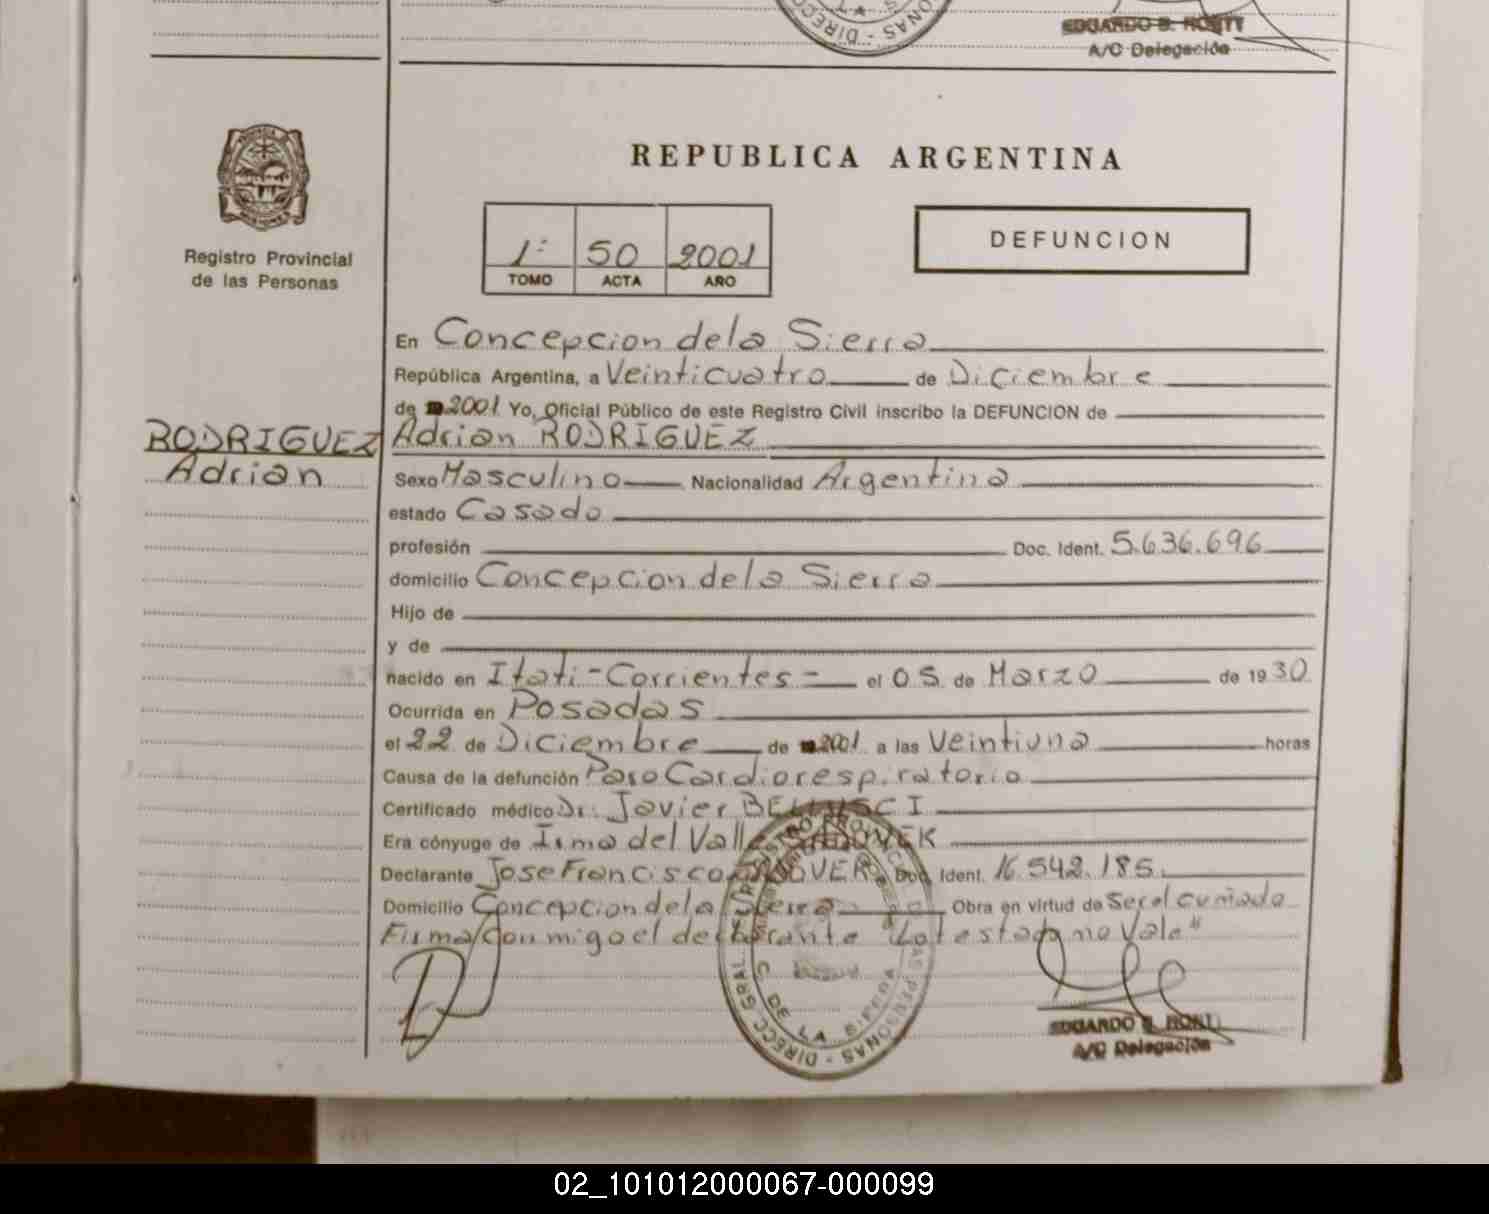 EDGARDO B.
A/C Delegación
REPUBLICA ARGENTINA
Registro Provincial
de las Personas
1º 50 2001
TOMO ACTA AÑO
DEFUNCION
En Concepcion dela Sierra
República Argentina, a Veinticuatro de Diciembre
de 2001 Yo, Oficial Público de este Registro Civil inscribo la DEFUNCION de
RODRIGUEZ
Adrian
Adrian RODRIGUEZ
Sexo Masculino Nacionalidad Argentina
estado Casado
profesión Doc. Ident. 5.636.696
domicilio Concepcion dela Sierra
Hijo de
y de
nacido en Itati-Corrientes- el 05 de Marzo de 1930
Ocurrida en Posadas
el 22 de Diciembre de 2001 a las Veintiuna horas
Causa de la defunción Paro Cardiorespiratorio
Certificado médico Dr. Javier BELLUSCI
Era cónyuge de Irma del Valle
Declarante Jose Francisco Doc. Ident. 16.542.185
Domicilio Concepcion dela Sierra Obra en virtud de Ser el cuñado
Firma Conmigo el declarante "Lo testado no Vale"
DE LA SIERRA
DIRECC. GRAL. PERSONAS
EDGARDO B.
A/C Delegación
02_101012000067-000099